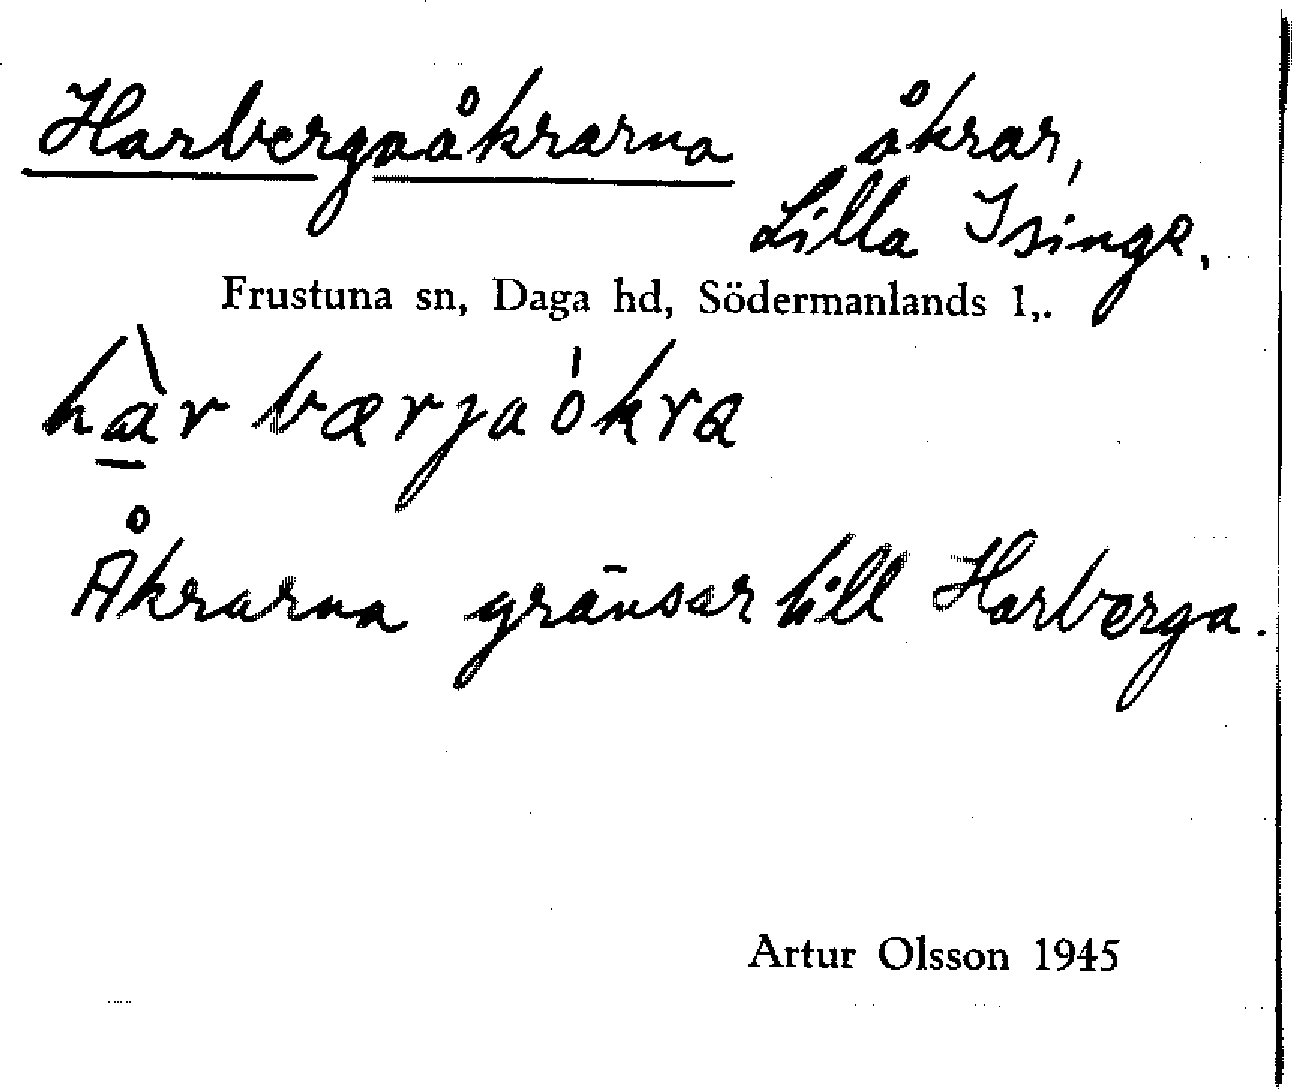 Harbergaåkrarna åkrar,
Lilla Isinge,
Frustuna sn, Daga hd, Södermanlands l,.
hà̠rbærjaókra
Åkrarna gränsar till Harberga.
Artur Olsson 1945